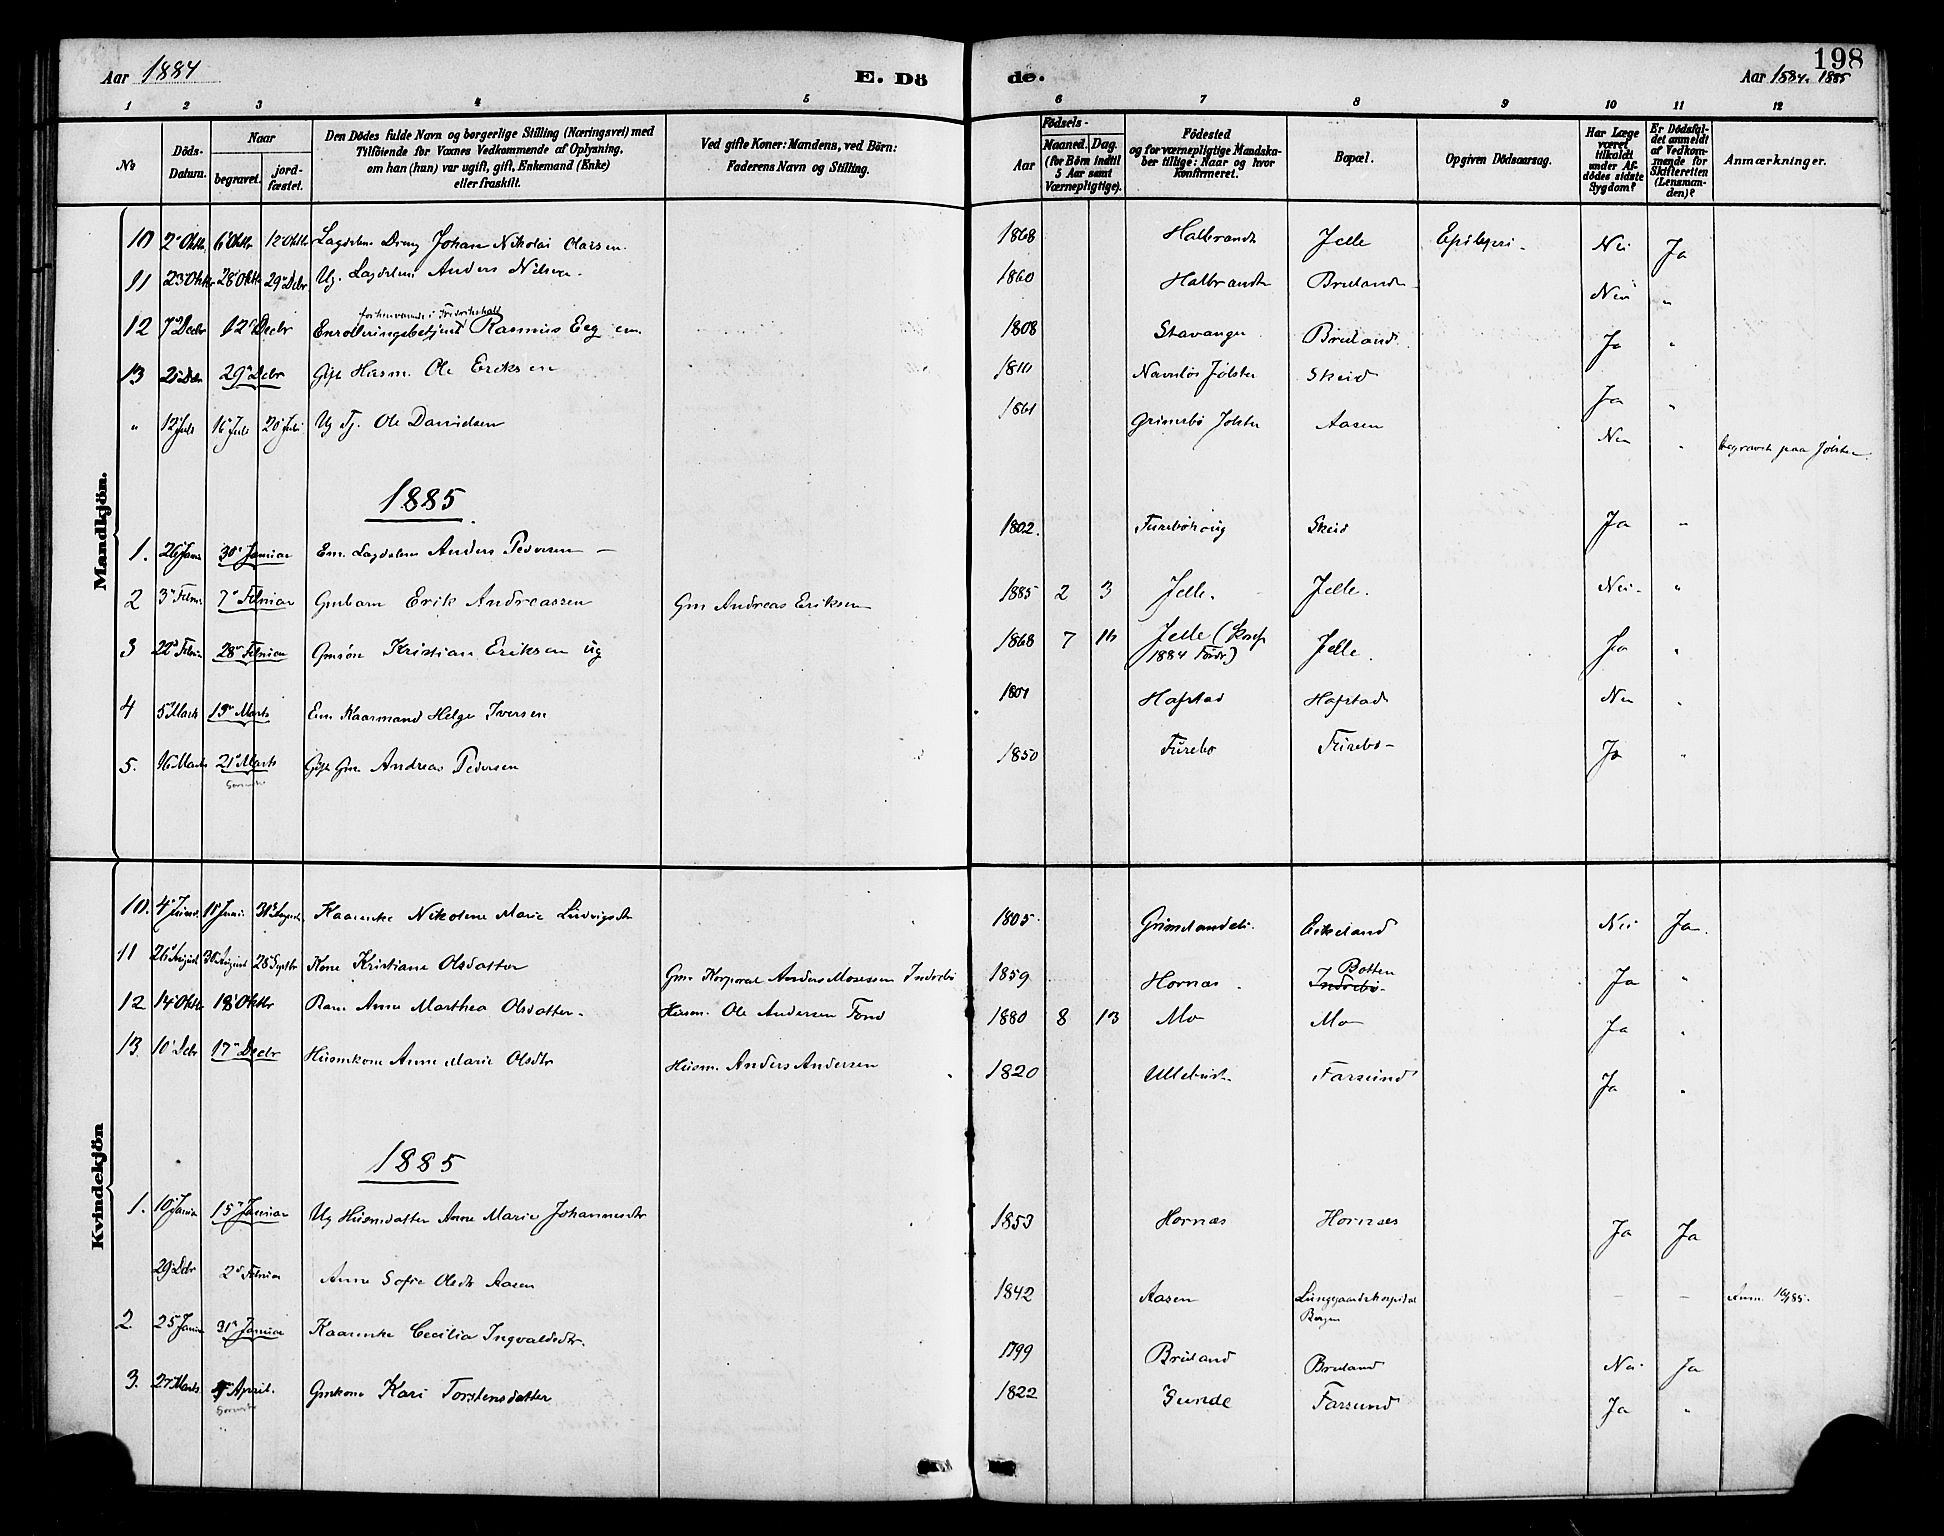 198
Aar 1884
E. Dö
de.
Aar 1884. 1885
1 2 3 4 5
6 7 8 9 10 11 12
No
Döds-Datum.
Naar
begravet.
jord-fæstet.
Den Dödes fulde Navn og borgerlige Stilling (Næringsvei) med
Tilföiende for Voxnes Vedkommende af Oplysning,
om han (hun) var ugift, gift, Enkemand (Enke)
eller fraskilt.
Ved gifte Koner: Mandens, ved Börn:
Faderens Navn og Stilling.
Födsels-
Aar
Maaned. Dag.
(for Börn indtil
5 Aar samt
Værnepligtige).
Födested
og for værnepligtige Mandska-
ber tillige: Naar og hvor
Konfirmeret.
Bopæl.
Opgiven Dödsaarsag.
Har Læge
været
tilkaldt
under Af-
dödes sidste
Sygdom?
Er Dödsfal-
det anmeldt
af Vedkom-
mende for
Skifteretten
(Lensman-
den)?
Anmærkninger.
Mandkjön.
10 2 Oktb 6 Oktb 12 Oktb Lægdslem Dreng Johan Nikolai Olaisen. 1868 Halbrandt Jelle Epilepsi. Nei Ja
11 23 Oktbr 28 Oktb 29 Debr Ug. Lægdslem Anders Nilsen. 1860 Halbrandt Bruland Nei "
forhenværende i Fredrikshald
12 7 Decbr 12 Decbr Enrolleringsbetjent Rasmus Eeg em. 1808 Stavanger Bruland Ja "
13 29 Debr Gift Husm. Ole Eriksen 1810 Navnløs Jølster Skeid Ja "
" 12 Juli 16 Juli 20 Juli Ug Tj. Ole Davidsen 1861 Grimsbø Jølster Aasen Nei " begravet paa Jølster
1885
1. 26 Janr 30 Januar Em. Lægdslem Anders Pedersen 1802. Furebøhoug Skeid Ja "
2 3 Febr 7 Februar Gmbarn Erik Andreassen Gm Andreas Eriksen 1885 2 3 Jelle. Jelle. Nei "
3 22 Febr 28 Februar Gmsøn Kristian Eriksen ug 1868 7 Jelle (Konf 1884 Førde) Jelle. Ja "
4 5 Marts 13 Marts Em Kaarmand Helge Iversen 1801 Hafstad Hafstad Nei "
5. 16 Marts 21 Marts Gift Gm. Andreas Pedersen 1850 Furebø Furebø Ja "
Kvindekjön
10. 4 Juni 31 August Kaarenke Nikoline Marie Ludvigsdtr 1805 Eikeland Nei Ja.
11 26 August 30 August 28 Septbr Kone Kristiane Olsdatter Gm Korporal Anders Mosessen Indrebø 1859 Hornæs Botten Indrebø Ja "
12 14 Oktb 18 Oktbr Barn Anne Marthea Olsdatter. Husm. Ole Andersen Tond 1880 8 13 Mo Mo Ja "
13 10 Debr 17 Decbr Husmkone Anne Marie Olsdtr Husm. Anders Andersen 1820 Farsund Ja "
1885
1. 10 Januar 15 Januar Ug Husmdatter Anne Marie Johannesdtr 1853 Hornæs Hornæs Ja Ja
29 Debr 2 Februar Anne Sofie Olsdtr Aasen 1842 Aasen Lungegaardshospital Bergen – –
2 25 Januar 31 Januar Kaarenke Cecilia Ingvaldsdtr. 1799 Bruland Bruland Nei Ja
3. 27 Marts April. Gmkone Kari Torstensdatter 1822 Sunde Farsund Ja "